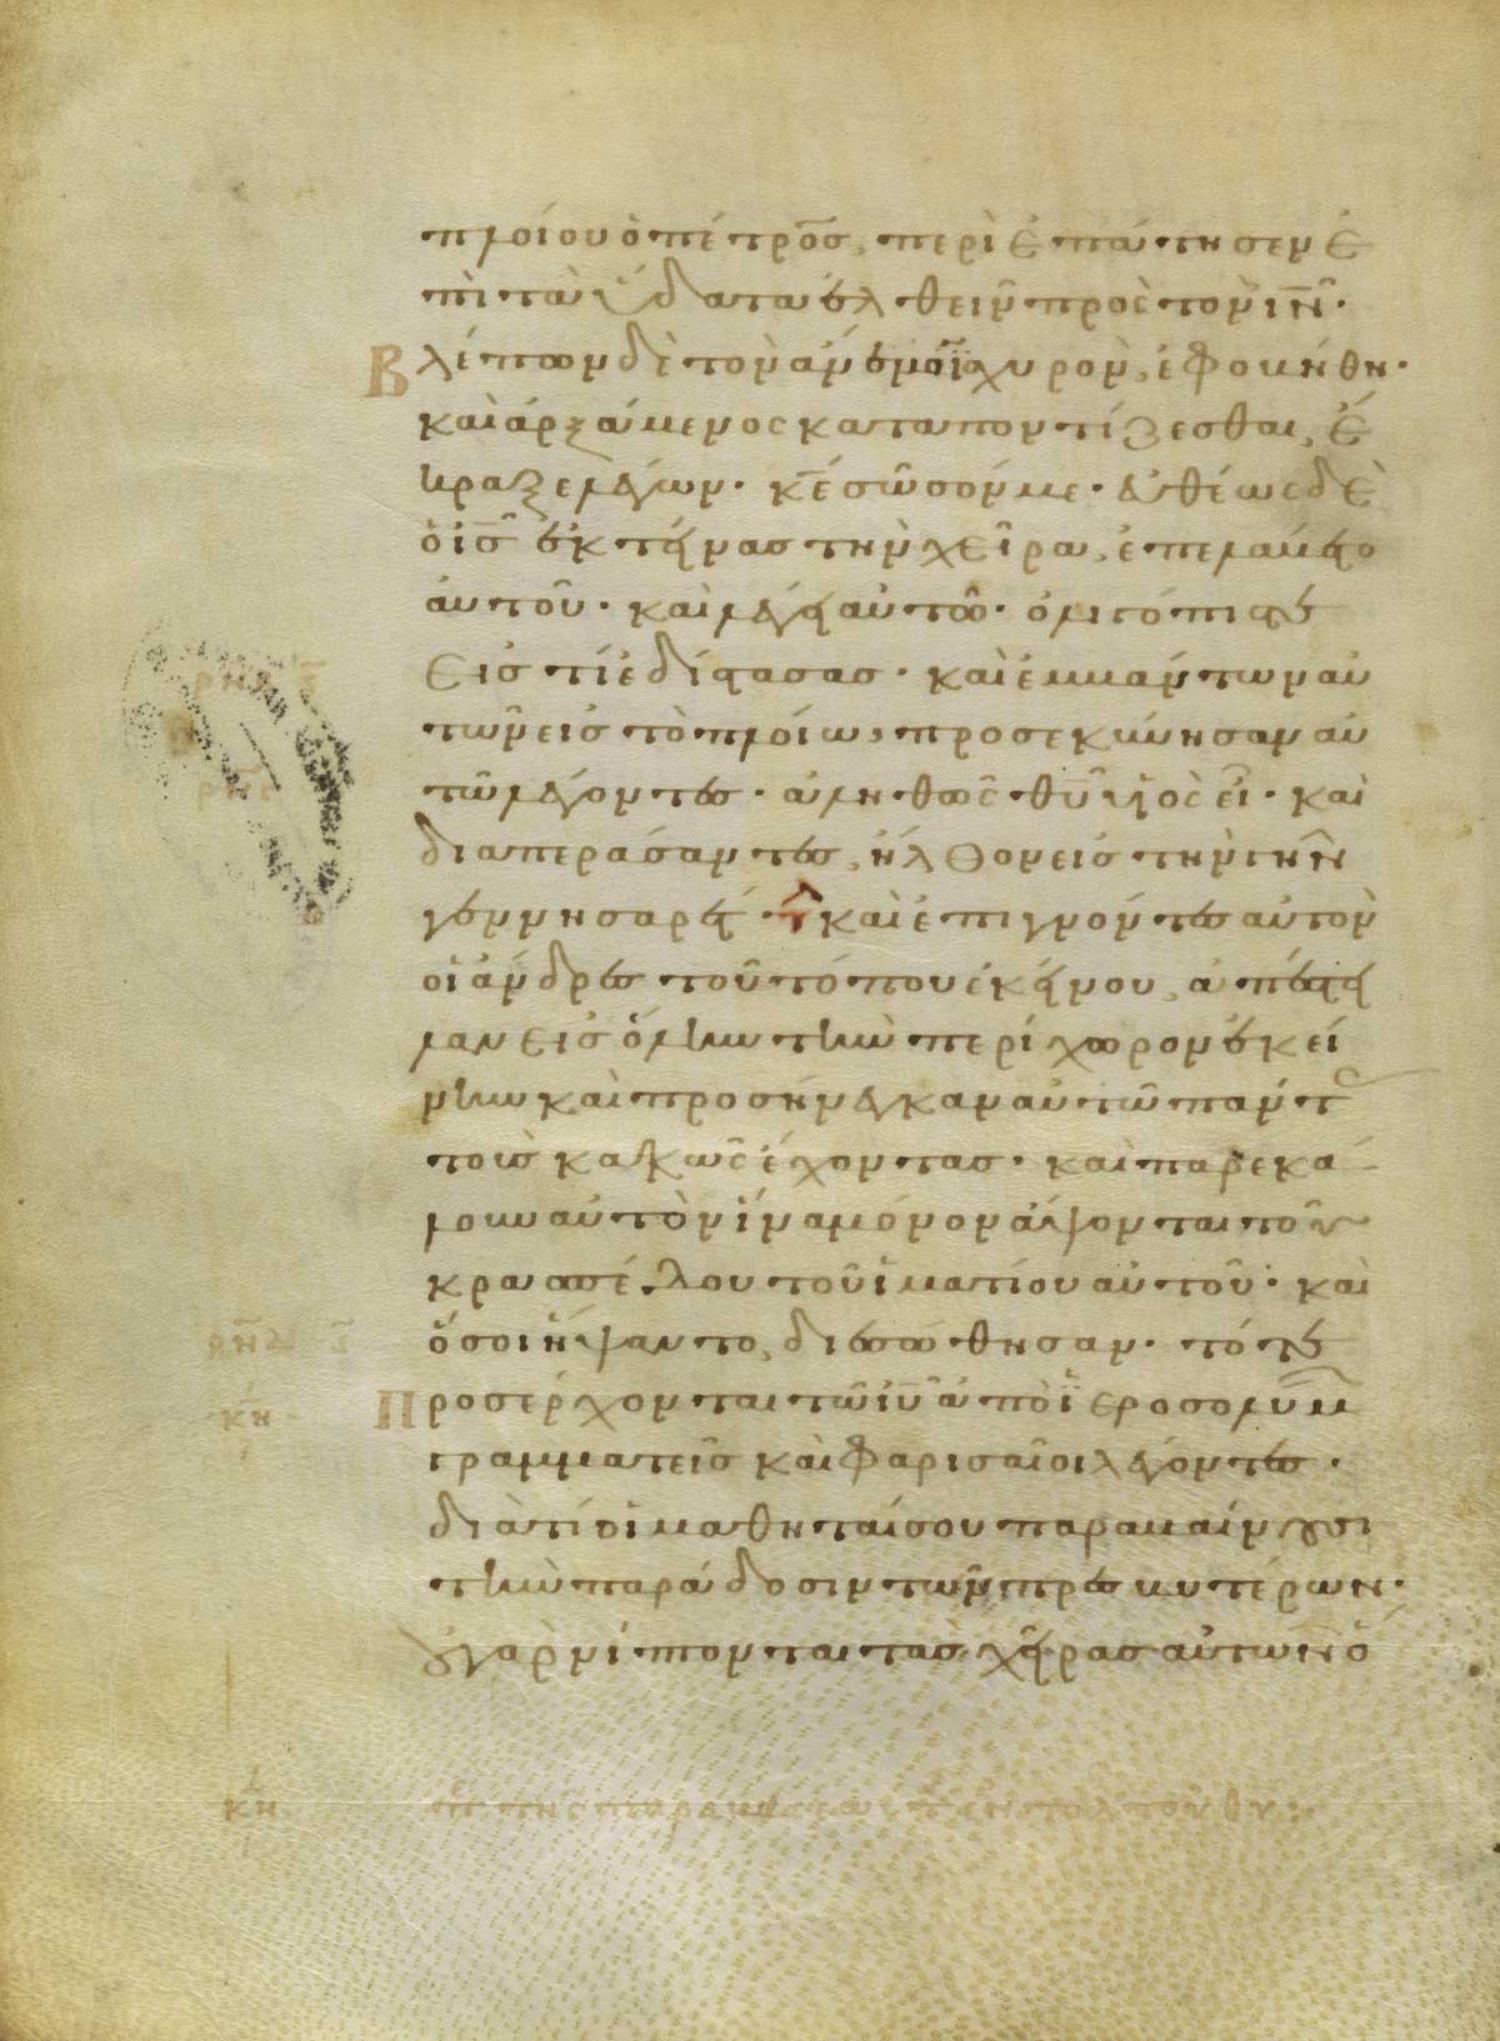 πλοίου ὁ πέτρος, περιεπάτησεν ἐ
πὶ τὰ ὕδατα ἐλθεῖν πρὸς τὸν ιν̅·
Βλέπων δὲ τὸν ἄνεμον ἰσχυρὸν, ἐφοβήθη·
καὶ ἀρξάμενος καταποντίζεσθαι, ἔ
κραξε λέγων· κε̅ σῶσόν με· ἐυθέως δὲ
ὁ ισ̅ ἐκτείνας τὴν χεῖρα, ἐπελάβετο
ἀυτοῦ· καὶ λέγει αὐτῶ· ὀλιγόπιστε
εἰς τί ἐδίστασας· καὶ ἐμβάντων αὐ
τῶν εἰς τὸ πλοίω, προσεκύνησαν αὐ
τῶ λέγοντες· ἀληθῶς θυ̅ ὑὸς εἶ· καὶ
διαπεράσαντες, ἦλθον εἰς τὴν γῆν
γεννησαρέτ· καὶ ἐπιγνόντες αὐτὸν
οἱ ἄνδρες τοῦ τόπου ἐκείνου, ἀπέστει
λαν εἰς ὅλην τὴν περίχωρον ἐκεί
νην καὶ προσήνεγκαν αὐτῶ πάντ
τοὺς κακῶς ἔχοντας· καὶ παρεκά
λουν αὐτὸν ἵνα μόνον ἅψονται τοῦ
κρασπέλου τοῦ ἱματίου αὐτοῦ· καὶ
ὅσοι ἥψαντο, διεσώθησαν· τότε
Προσέρχονται τῶ ιυ̅ ἀπὸ ἱεροσολύμ
γραμματεῖς καὶ φαρισαῖοι λέγοντες·
διὰ τί οἱ μαθηταί σου παραβαίνουσι
τὴν παράδοσιν τῶν πρεσβυτέρων·
οὐ γὰρ νίπτονται τὰς χεῖρας αὐτῶν ὅ
κη
κη